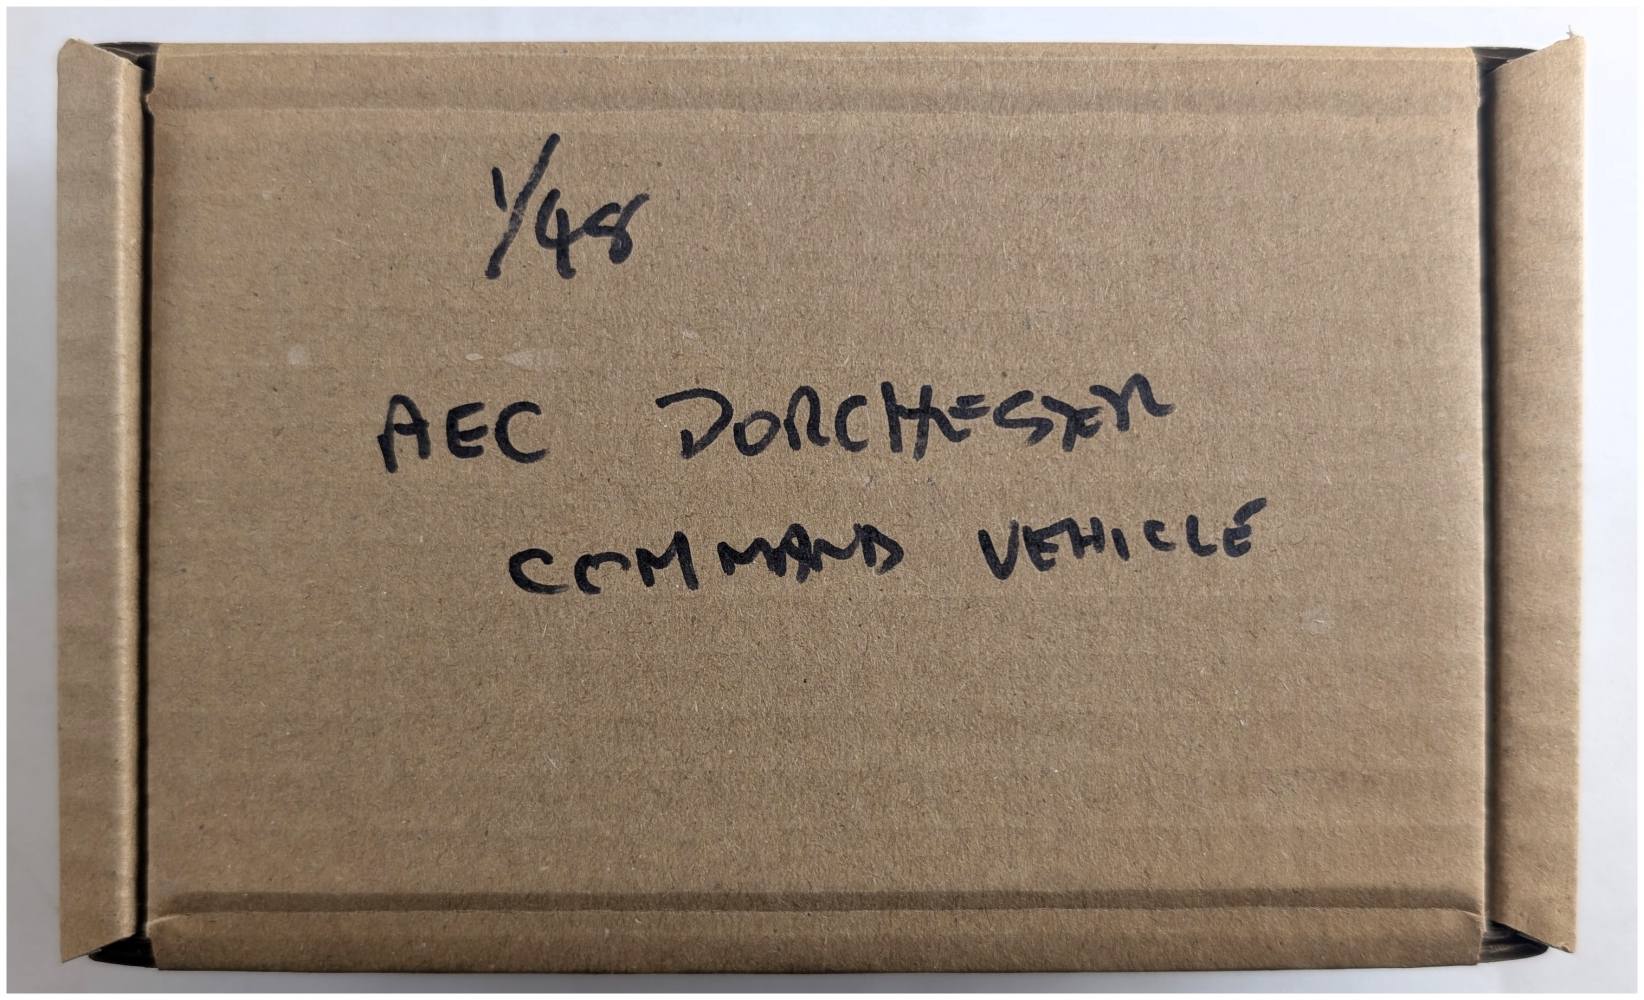 1/48
AEC DORCHESTER
COMMAND VEHICLE